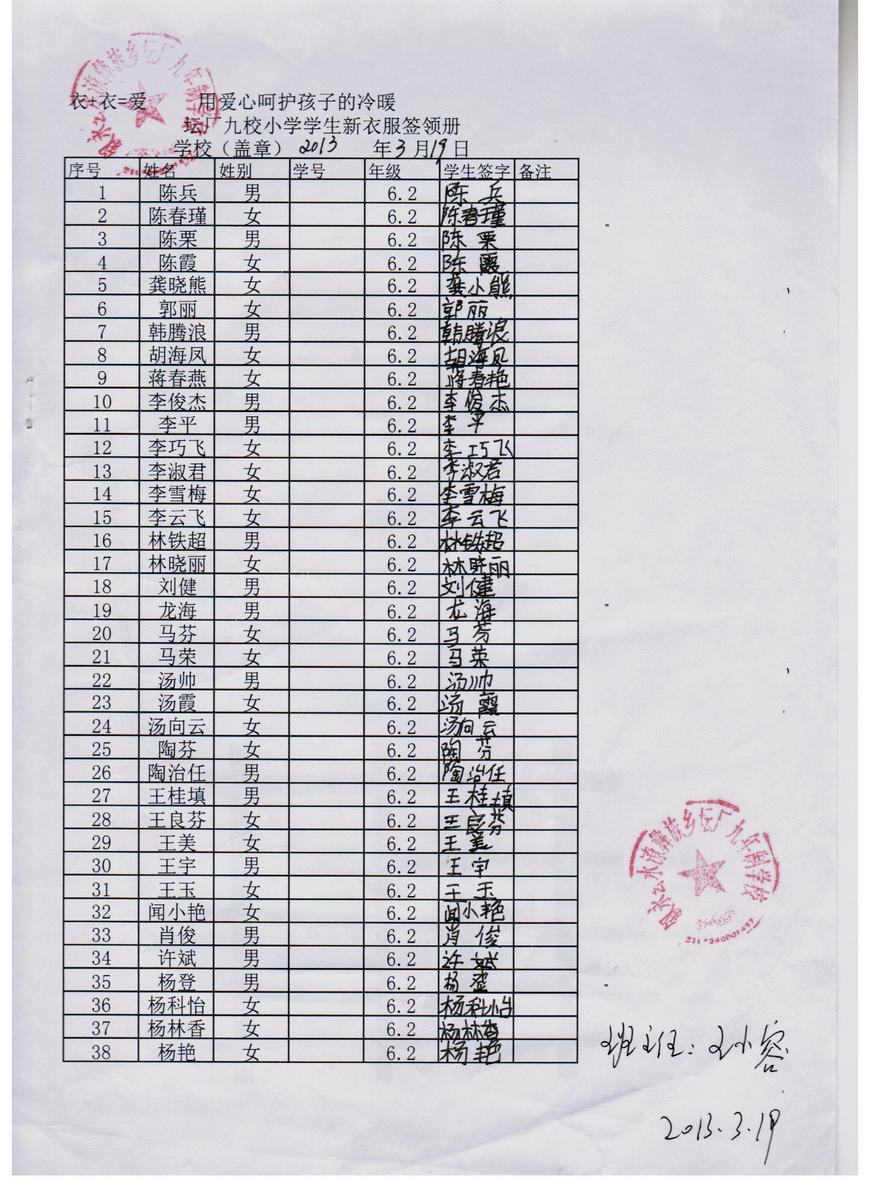 衣+衣=爱 用爱心呵护孩子的冷暖
坛厂九校小学学生新衣服签领册
学校（盖章） 2013 年3月19日
序号 姓名 性别 学号 年级 学生签字 备注
1 陈兵 男 6.2 陈兵
2 陈春瑾 女 6.2 陈春瑾
3 陈栗 男 6.2 陈栗
4 陈霞 女 6.2 陈霞
5 龚晓熊 女 6.2 龚小熊
6 郭丽 女 6.2 郭丽
7 韩腾浪 男 6.2 韩腾浪
8 胡海凤 女 6.2 胡海凤
9 蒋春燕 女 6.2 蒋春艳
10 李俊杰 男 6.2 李俊杰
11 李平 男 6.2 李平
12 李巧飞 女 6.2 李巧飞
13 李淑君 女 6.2 李淑君
14 李雪梅 女 6.2 李雪梅
15 李云飞 女 6.2 李云飞
16 林铁超 男 6.2 林铁超
17 林晓丽 女 6.2 林晓丽
18 刘健 男 6.2 刘健
19 龙海 男 6.2 龙海
20 马芬 女 6.2 马芬
21 马荣 女 6.2 马荣
22 汤帅 男 6.2 汤帅
23 汤霞 女 6.2 汤霞
24 汤向云 女 6.2 汤向云
25 陶芬 女 6.2 陶芬
26 陶治任 男 6.2 陶治任
27 王桂填 男 6.2 王桂填
28 王良芬 女 6.2 王良芬
29 王美 女 6.2 王美
30 王宇 男 6.2 王宇
31 王玉 女 6.2 王玉
32 闻小艳 女 6.2 闻小艳
33 肖俊 男 6.2 肖俊
34 许斌 男 6.2 许斌
35 杨登 男 6.2 杨登
36 杨科怡 女 6.2 杨科怡
37 杨林香 女 6.2 杨林香
38 杨艳 女 6.2 杨艳
水潦彝族乡坛厂九年制学校
班主任：王小容
2013.3.19